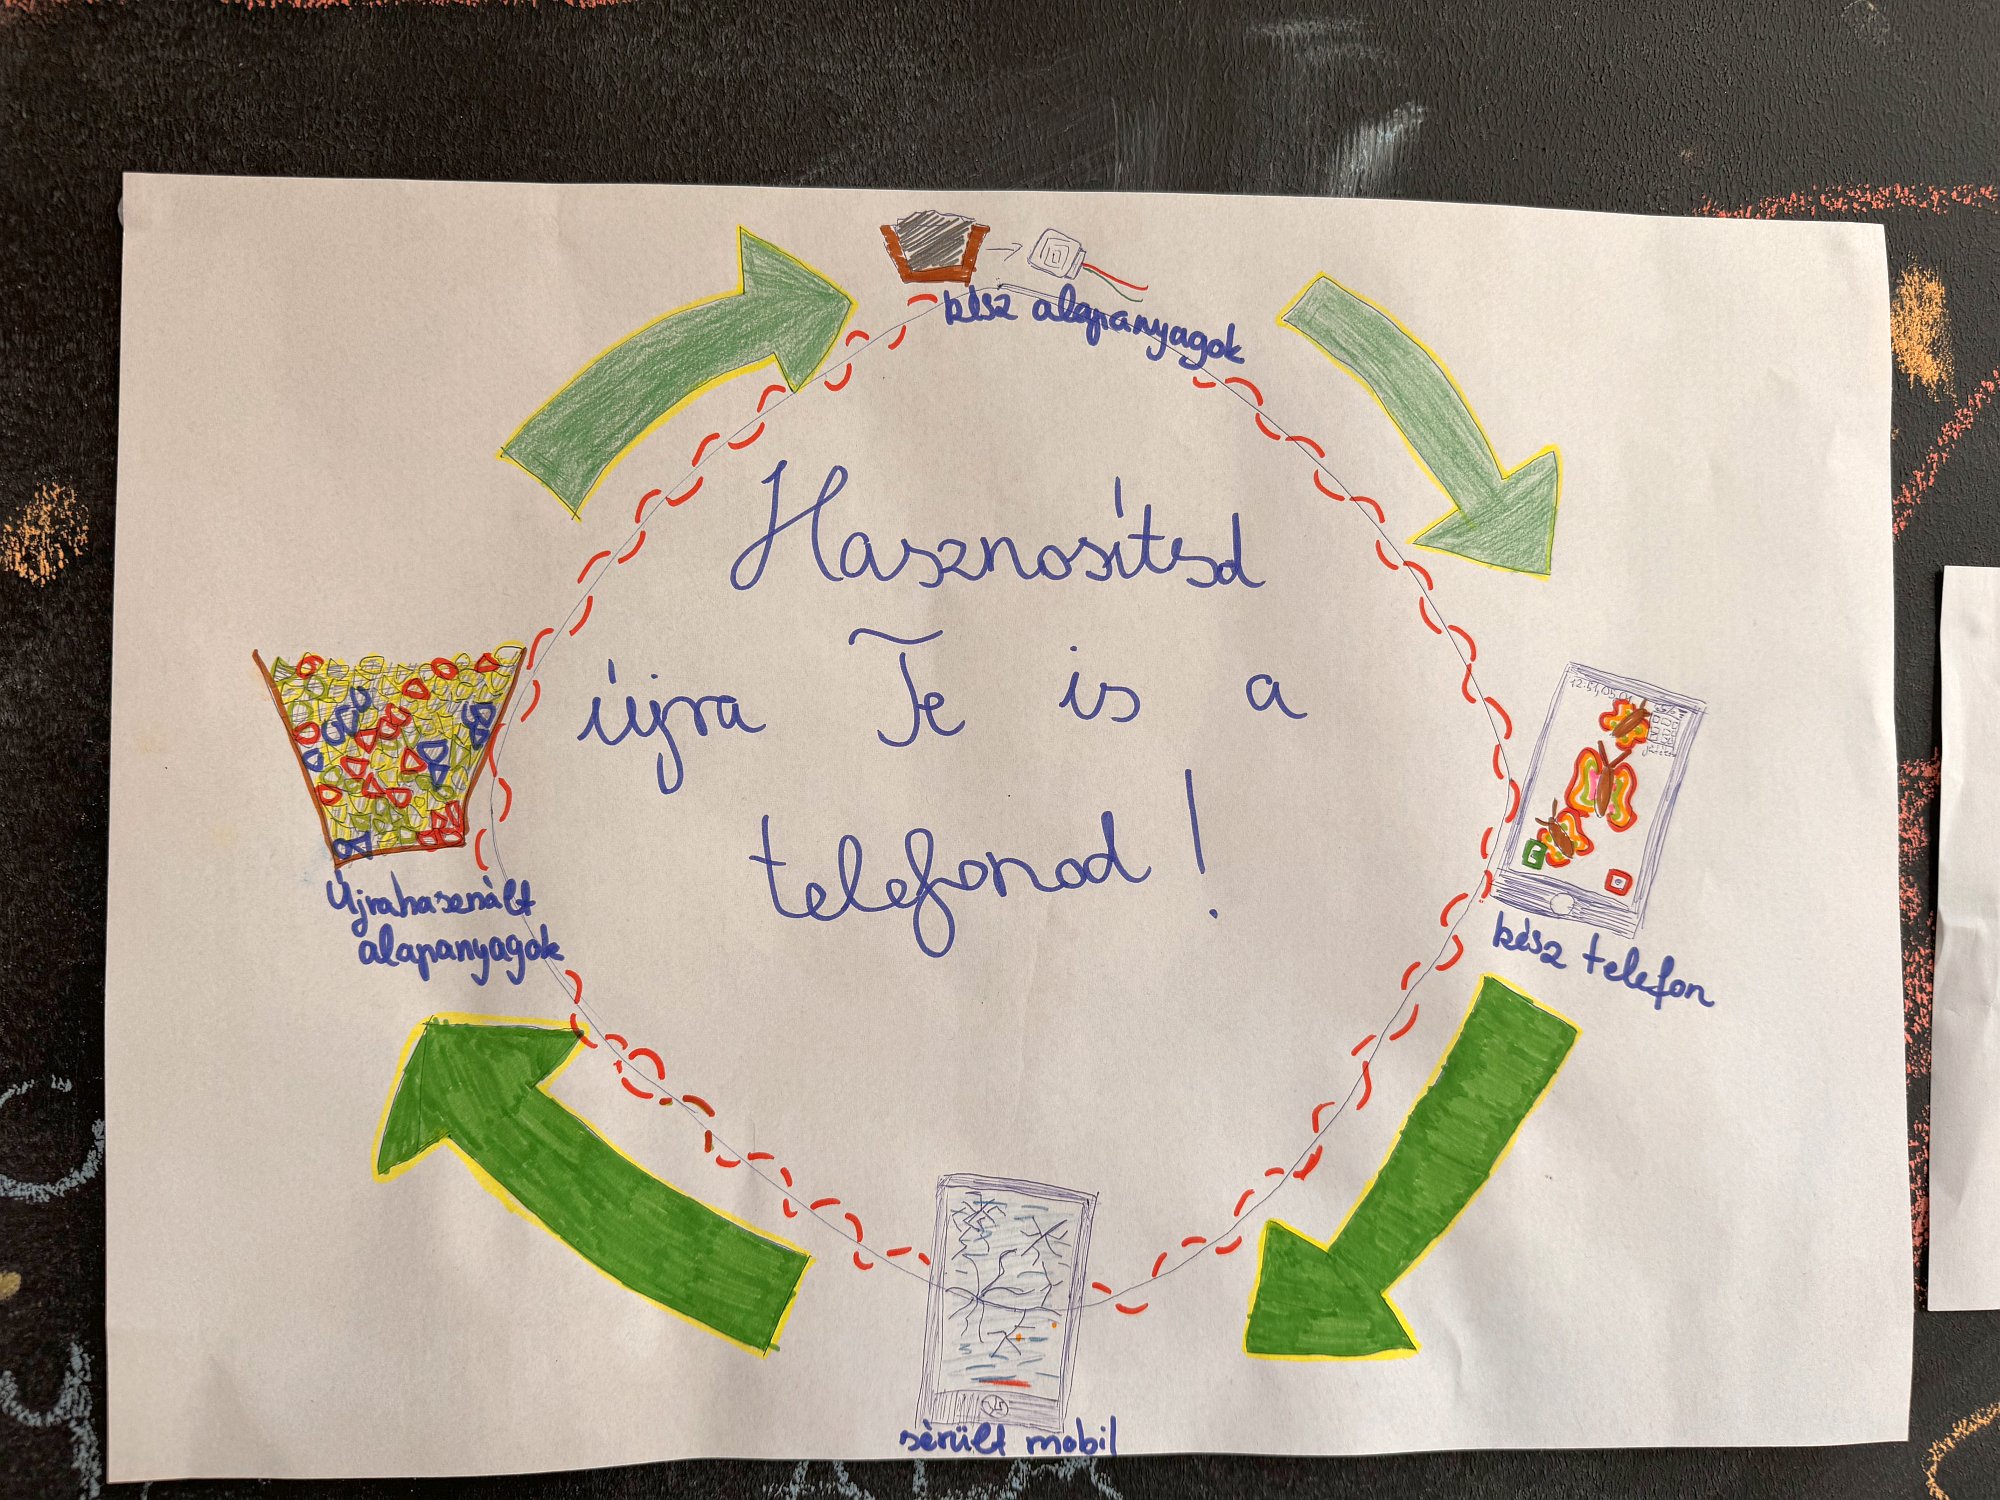 kész alapanyagok
Hasznosítsd
újra Te is a
telefonod!
Újrahasznált
alapanyagok
kész telefon
sérült mobil